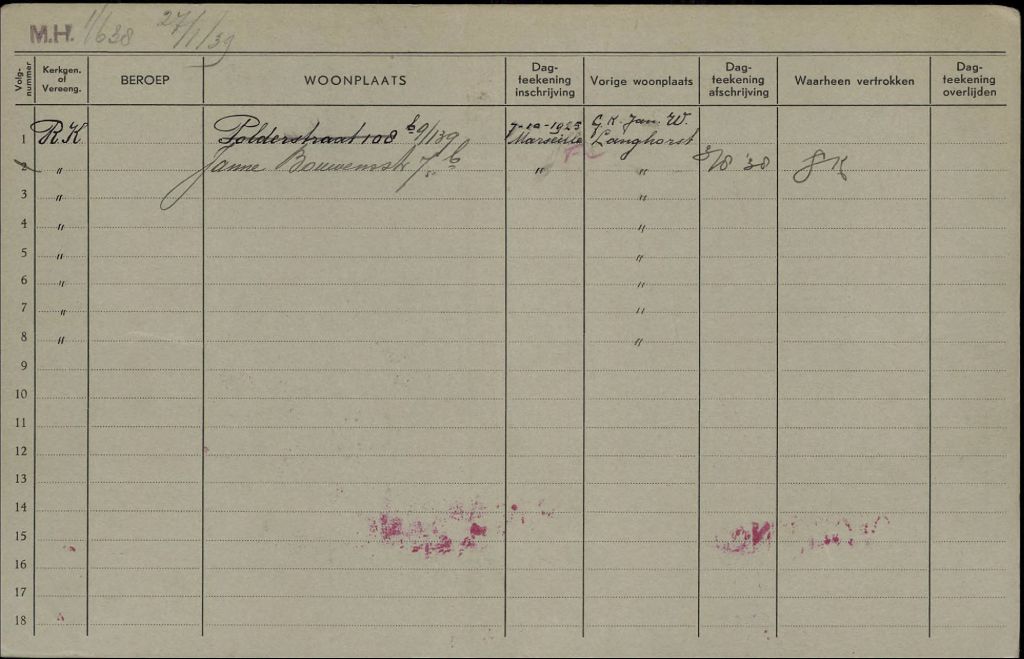 M.H. 1/638 27/1/39
Volg-nummer Kerkgen. of Vereeng. BEROEP WOONPLAATS Dag-teekening inschrijving Vorige woonplaats Dag-teekening afschrijving Waarheen vertrokken Dag-teekening overlijden
1 R.K. Polderstraat 108 b 9/139 7-10-1925 G.K. Jan. W
Marseille Langhorst
2 " Janne " " 3/8 '38 GK
3 " "
4 " "
5 " "
6 " "
7 " "
8 " "
9
10
11
12
13
14
15
16
17
18